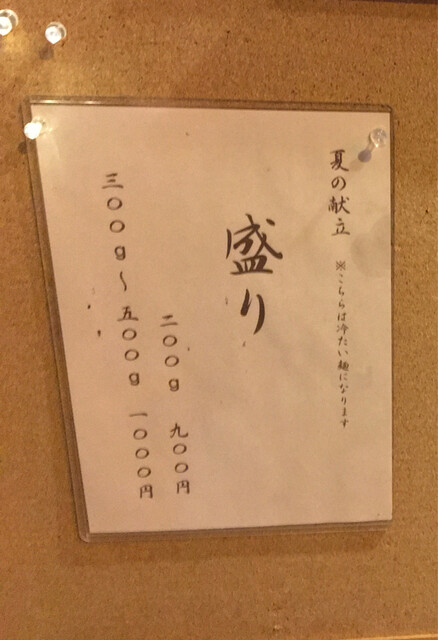 夏の献立
※こちらは冷たい麺になります
盛り
二〇〇g 九〇〇円
三〇〇g〜五〇〇g 一〇〇〇円